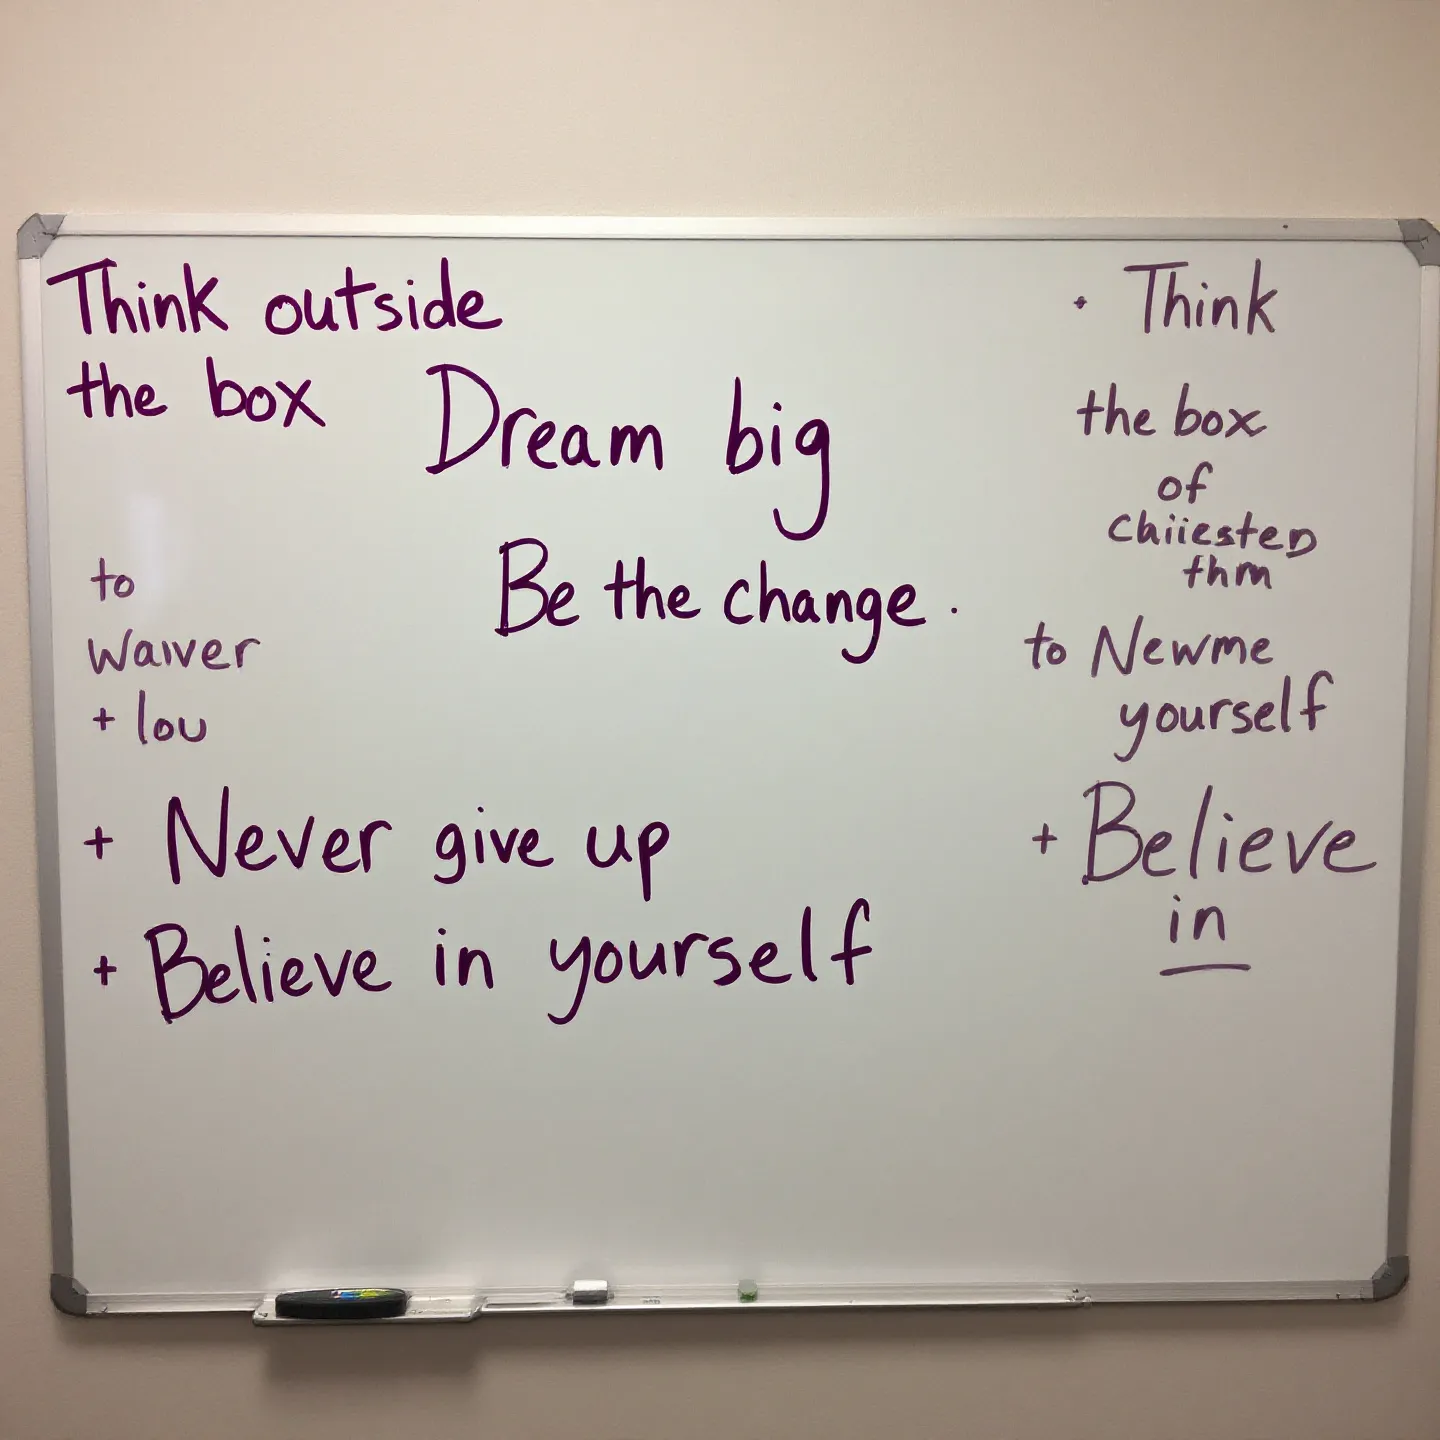 Think outside
the box
Dream big
Be the change.
to
waiver
+ lou
+ Never give up
+ Believe in yourself
· Think
the box
of
chiiesteD
thm
to Newme
yourself
+ Believe
in